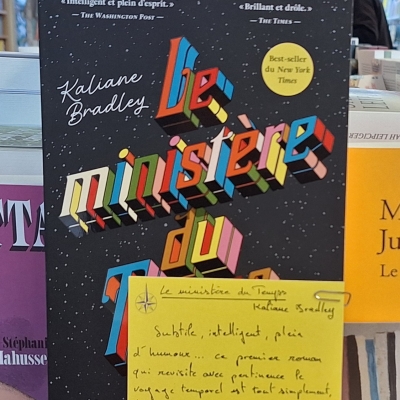 « Intelligent et plein d'esprit. »
— The Washington Post —
« Brillant et drôle. »
— The Times —
Best-seller
du New York
Times
Kaliane
Bradley
Le
ministère
du
T
Le ministère du Temps
Kaliane Bradley
Subtile, intelligent, plein
d'humour... ce premier roman
qui revisite avec pertinence le
voyage temporel est tout simplement,
TA
Stéphani
Mahusse
AH LEIPCIGER
M
Ju
Le